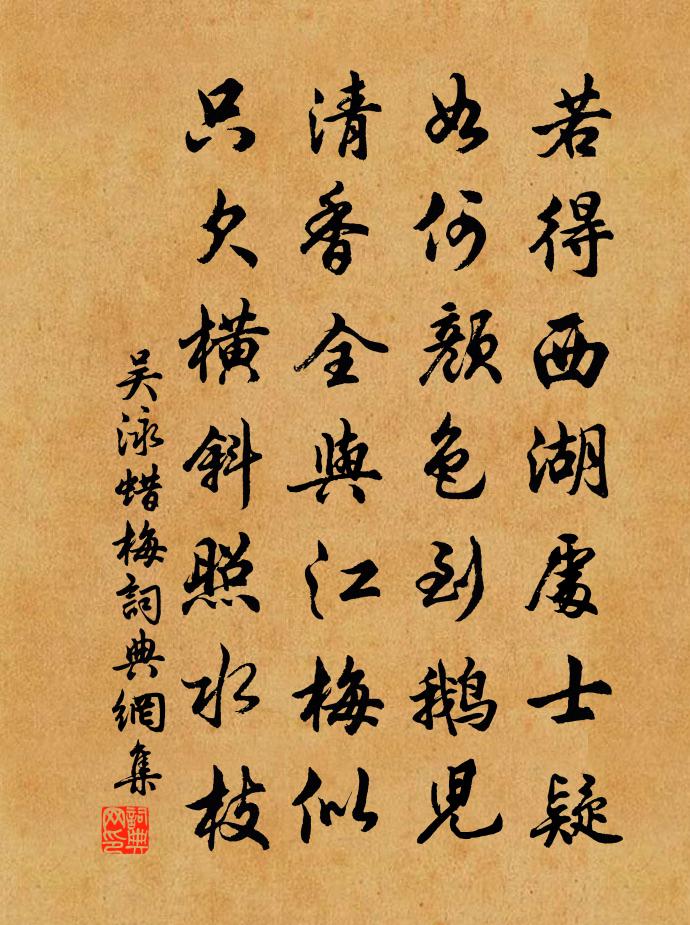 若得西湖處士疑
如何顏色到鵝兒
清香全與江梅似
只欠橫斜照水枝
吴泳蜡梅詞典網集
詞典网印